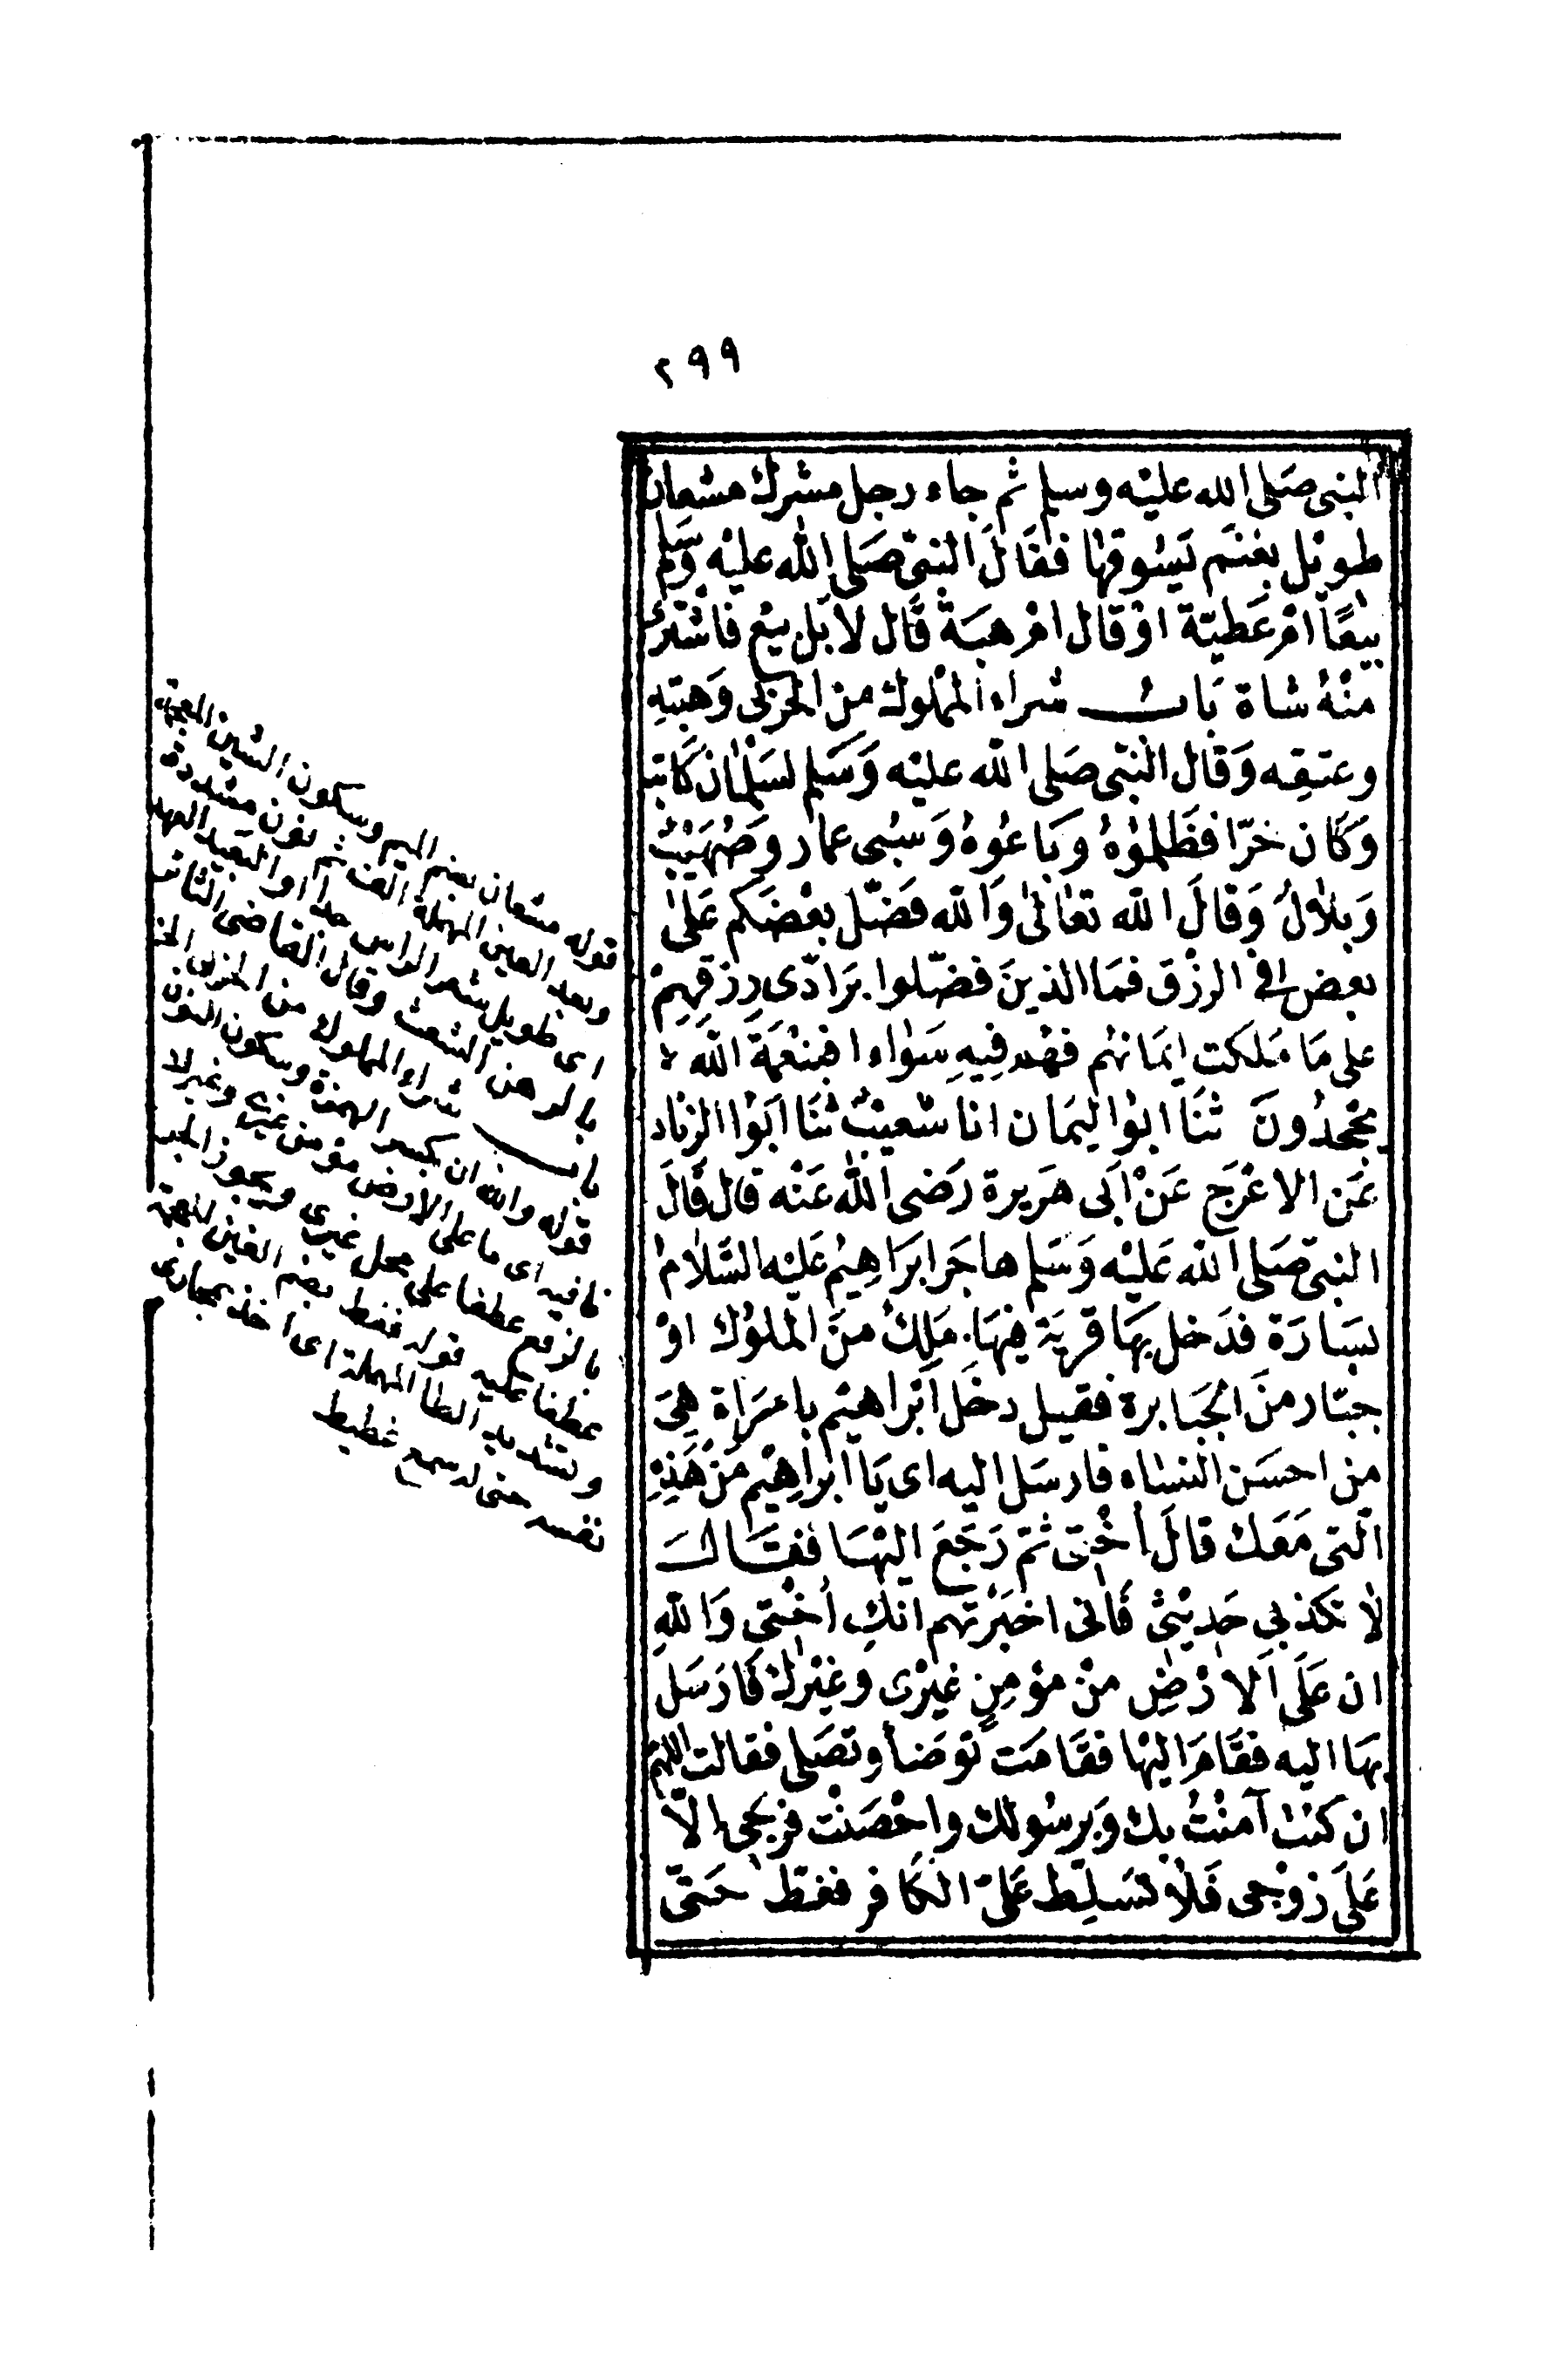 ٢٩٩
النبى صَلى الله عليْه وسلم ثم جاء رجل مشرك مشعان
طويْل بغنَم يَسُوقهَا فقَالَ النبىّ صَلى الله عليْه وَسَلم
بيعًا امْ عَطيّة اوْ قال امْ هبَة قَال لا بَل بيْع فاشْترَى
منْهُ شاة بَابُ شراء المْملوك من الحَرْبى وَهبَتِهِ
وعتقِه وَقال النّبىّ صَلى الله عليْه وَسَلم لسَلمْانَ كَاتب
وَكَان حُرّا فظَلمُوْهُ وَبَاعُوهُ وَسُبى عمار وَصُهَيْبٌ
وَبلاَلٌ وَقَالَ الله تعَالىٰ وَالله فضّل بعْضَكم عَلىٰ
بعض فى الرزْق فمَا الذينَ فضّلوا برَادّى رزقِهِمْ
على مَا مَلكت ايمَانهُم فهُم فِيهِ سَوَاء افبنعْمَة الله
يجْحدُونَ ثنَا ابوُا ليَمان انا شعَيبٌ ثنَا ابَوُا الزناد
عَن الاعْرَج عَنْ ابَى هَريرة رَضى الله عَنْه قال قَالَ
النبىّ صَلى الله عَليْه وَسَلم هاجَر ابرَاهِيْم عَليْه السَّلاَمُ
بسَارَة فدَخل بهَا قريَة فيهَا مَلِكٌ منَ الملوُك اوْ
جبّار منَ الجَبَابرة فقيل دخَل ابْراهيْم بامرَاة هِىَ
من احسَن النسَاء فارسَل اليه اى يَا ابْراهِيْم مَنْ هَذِهِ
الّتى مَعَك قالَ اُخْتى ثمّ رَجَعَ اليْهَا فقَالَ
لاَ تكذبى حَديْثى فَانى اخبَرْتهم انكِ اُخْتى وَاللهِ
ان عَلَى الاَرْضِ منْ مؤمِنٍ غيْرى وغيْركِ فَارسَل
بهَا اليه فقَامَ اليْهَا فقَامَت توَضأ وتصَلى فقالت اللهمّ
ان كنتُ آمنْتُ بك وَبرسُولك واحْصَنْت فرْجى الاّ
عَلىَ زوْجى فَلاَ تسَلِّط عَلىّ الكَافر فغطّ حَتّى
قوله مشعان بضم الميم وسكون الشين المعجمة
وبعد العين المهملة الف ثم نون مشددة
اى طويل شعر الراس جدا او البعيد العهد
بالدهن الشعث وقال القاضى الثائر
باب شراء المملوك من الحربى
قوله والله ان بكسر الهمزة وسكون النون
نافية اى ما على الارض مؤمن غيرى وغيرك
بالرفع عطفا على محل غيرى ويجوز الجر
عطفا عليه قوله فغط بضم الغين المعجمة
وتشديد الطا المهملة اى اخذ بمجارى
نفسه حتى سمع غطيط